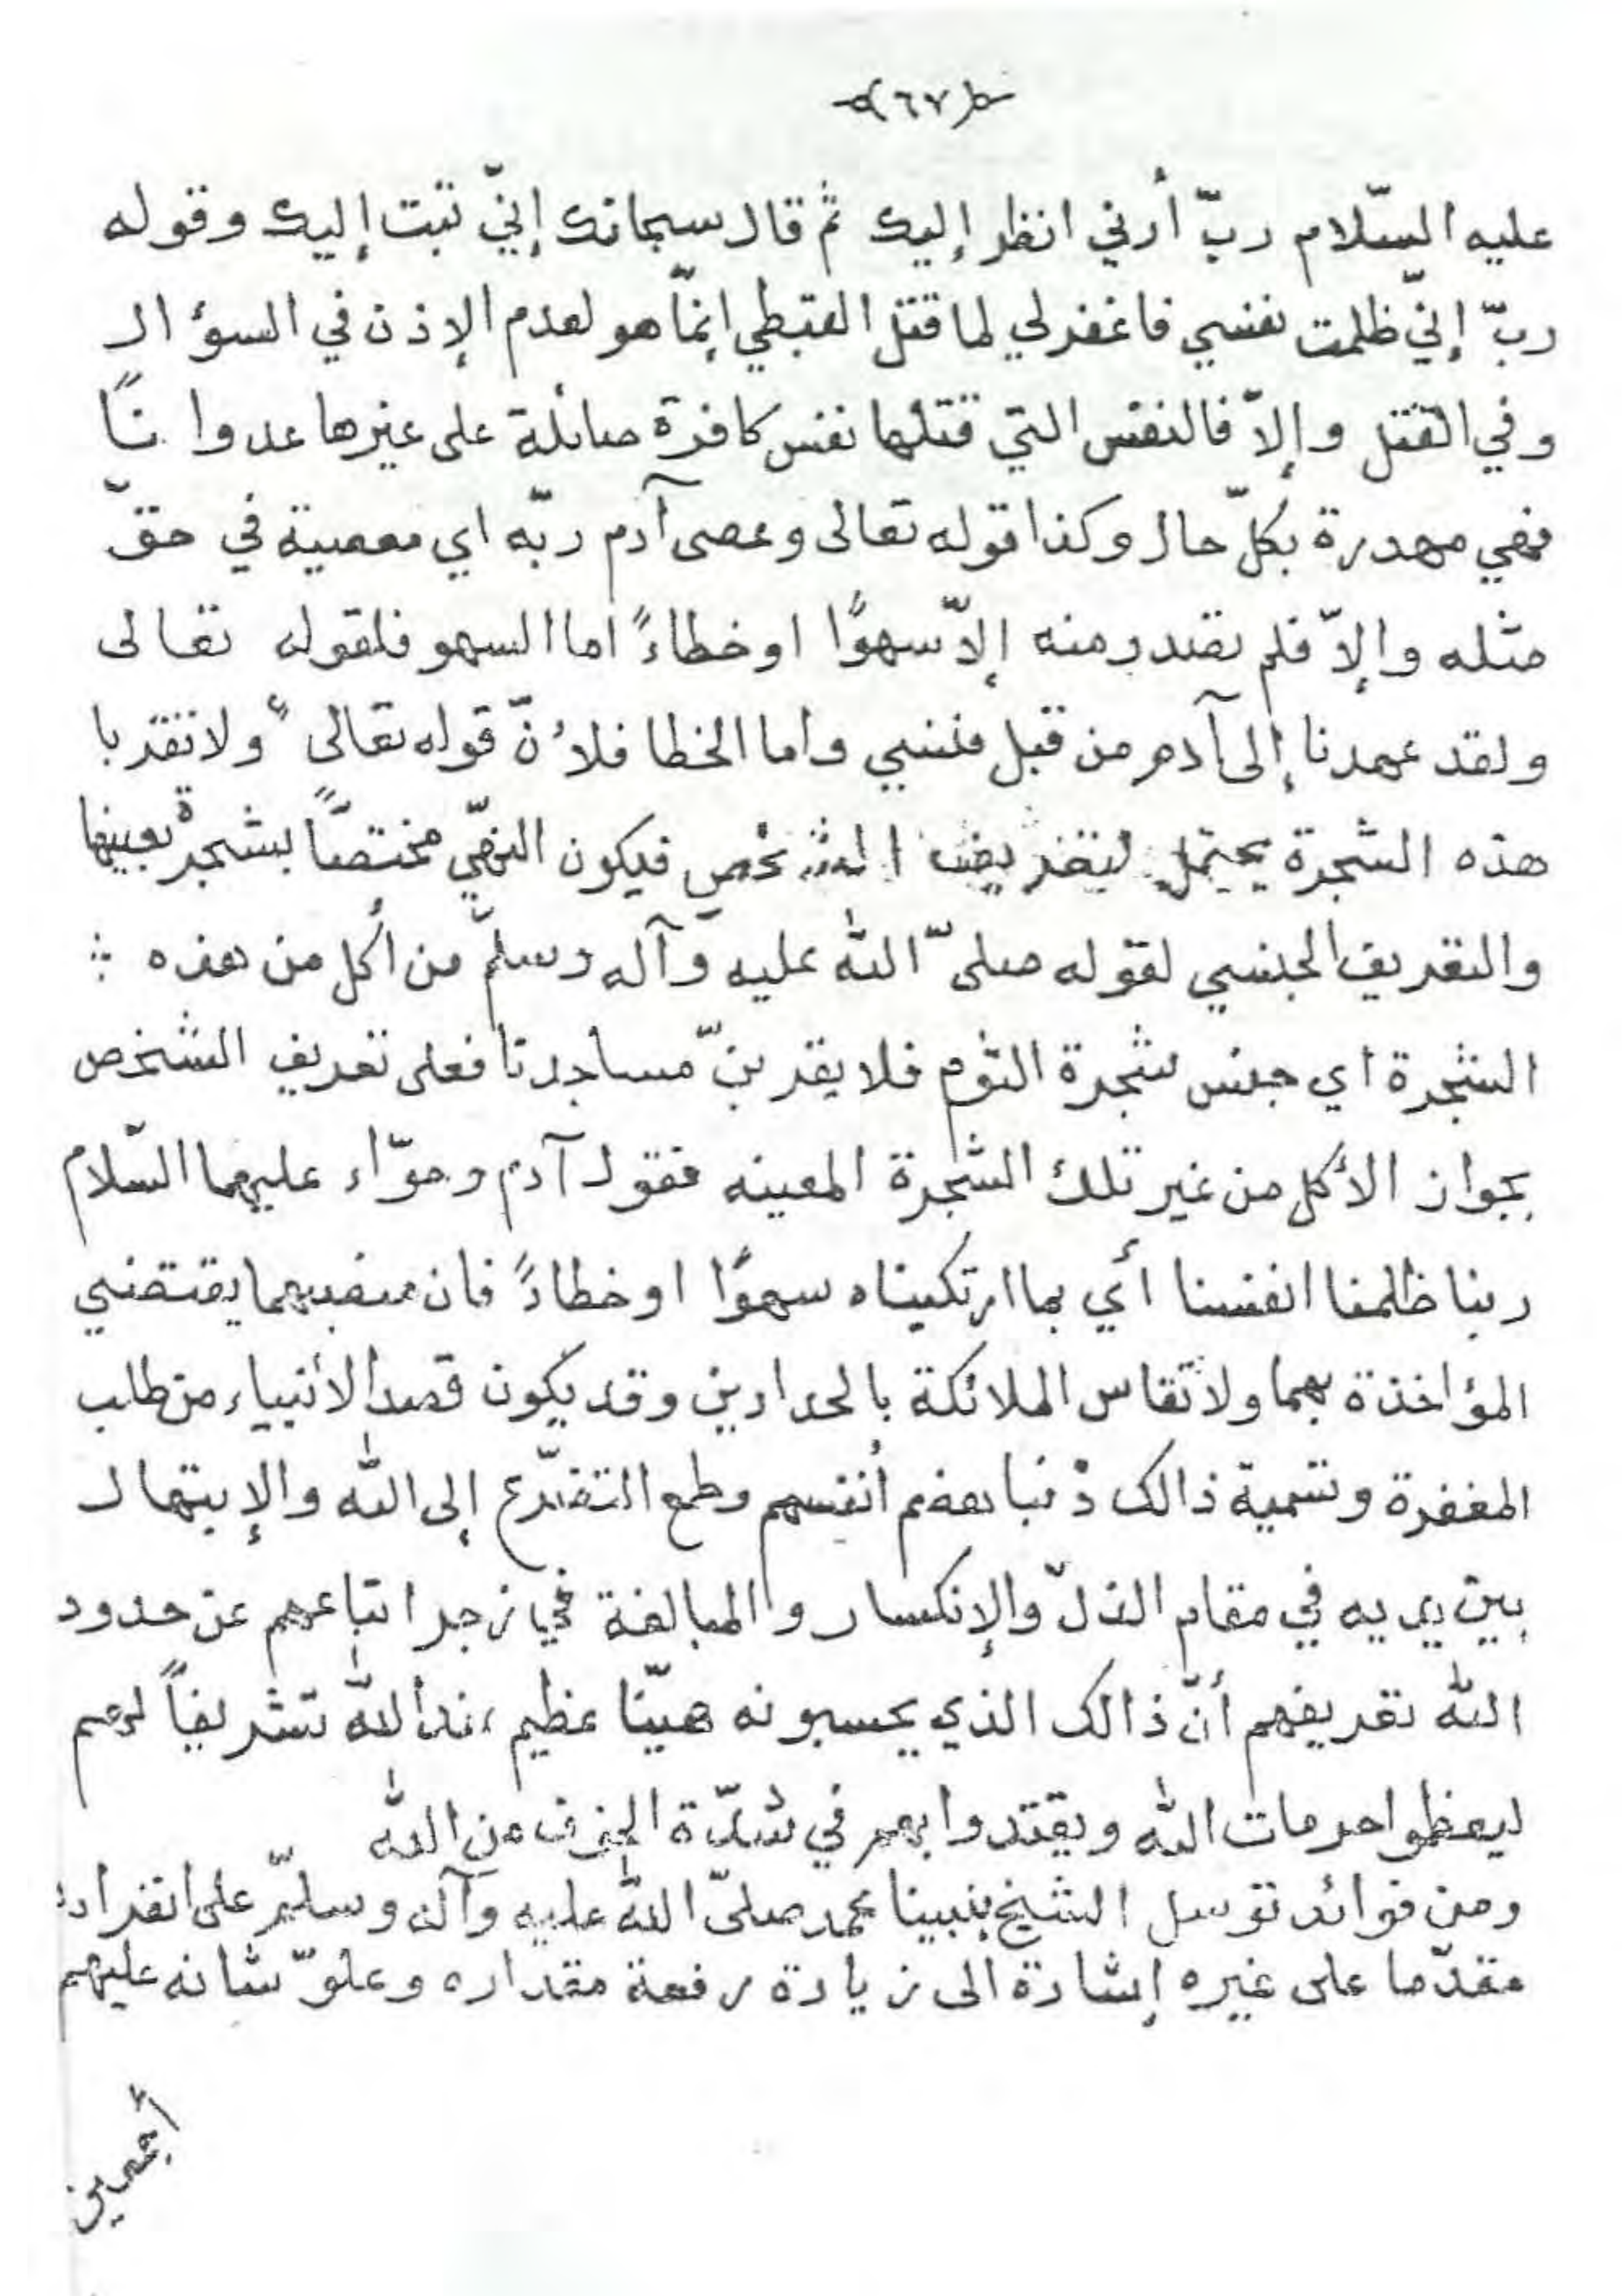 (٦٧)
عليه السّلام ربّ أرني انظر إليك ثم قال سبحانك إنيّ تبت إليك وقوله
ربّ إنيّ ظلمت نفسي فاغفرلي لما قتل القبطي إنمّا هو لعدم الإذن في السؤال
وفي القتل وإلاّ فالنفس التي قتلها نفس كافرة صائلة على غيرها عدوانًا
فهي مهدرة بكلّ حال وكذا قوله تعالى وعصى آدم ربّه اي معصية في حقّ
مثله وإلاّ فلم يصدر منه إلاّ سهوًا اوخطاءً اما السهو فلقوله تعالى
ولقد عهدنا إلى آدم من قبل فنسي واما الخطا فلأنّ قوله تعالى " ولا تقربا
هذه الشجرة " يحتمل تعريف الشخص فيكون النهّي مختصّاً بشجرة بعينها
والتعريف الجنسي لقوله صلىّ الله عليه وآله وسلمّ من أكل من هذه :
الشجرة اي جنس شجرة الثوم فلا يقربنّ مساجدنا فعلى تعريف الشخص
بجواز الأكل من غير تلك الشجرة المعينه فقول آدم وحوّاء عليهما السّلام
ربنا ظلمنا انفسنا أي بما ارتكبناه سهوًا اوخطاءً فان منصبهما يقتضي
المؤاخذة بهما ولا تقاس الملائكة بالحدادين وقد يكون قصد الأنبياء من طلب
المغفرة وتسمية ذالك ذنبا هضم أنفسهم وطمع التضرّع إلى الله والإبتهال
بين يديه في مقام الذلّ والإنكسار والمبالغة في زجر اتباعهم عن حدود
الله تعريفهم أنّ ذالك الذي يحسبونه هيّنا عظيم عند الله تشريفاً لهم
ليعظموا حرمات الله ويقتدوا بهم في شدّة الخوف من الله
ومن فوائد توسل الشيخ بنبينا محمد صلىّ الله عليه وآله وسلمّ على انفراده
مقدّما على غيره إشارة الى زيادة رفعة مقداره وعلوّ شانه عليهم
أجمعين